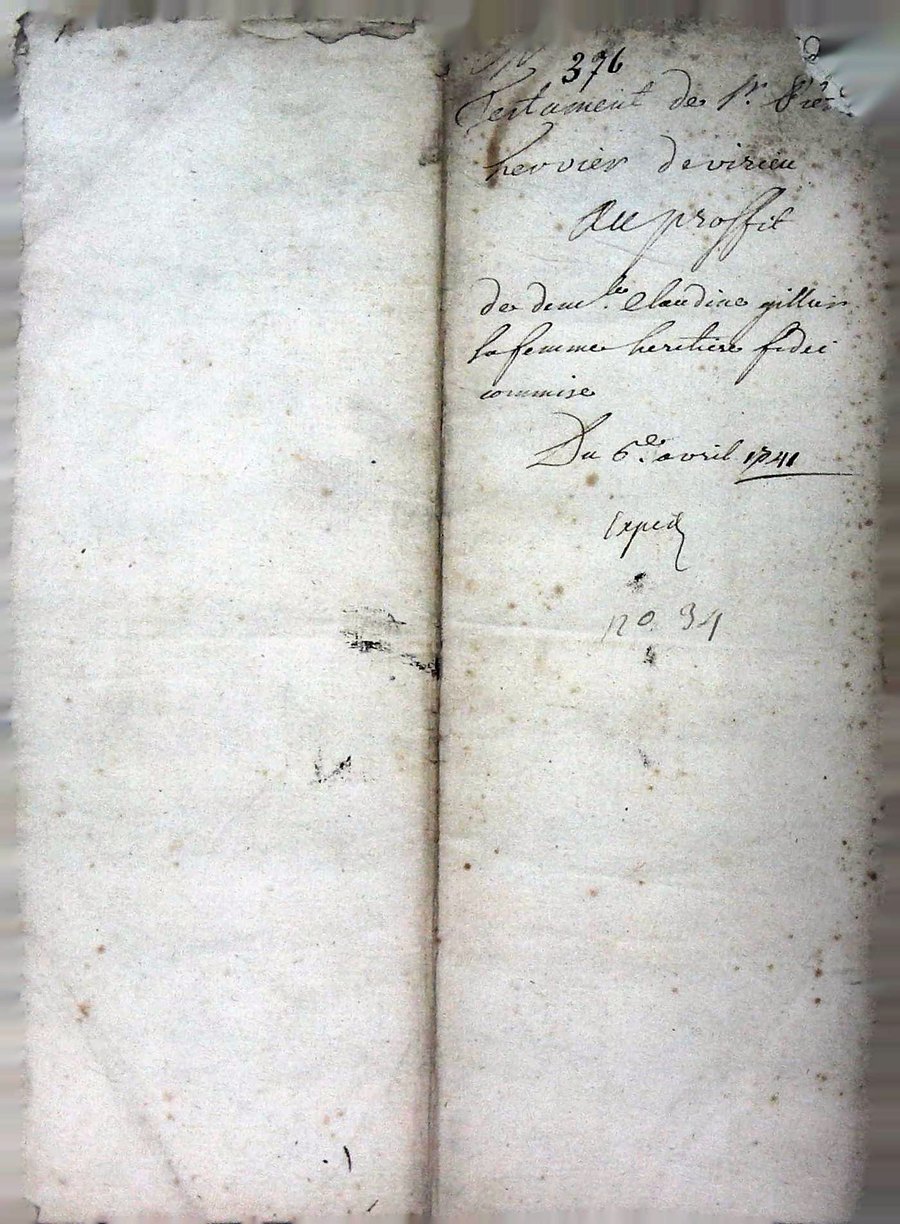 376
Testament de Sr. Pier
hervier de virieu
Au proffit
de demlle. Claudine gillier
sa femme heritiere fidei
commise
Du 6e. avril 1741
Exped
no. 34